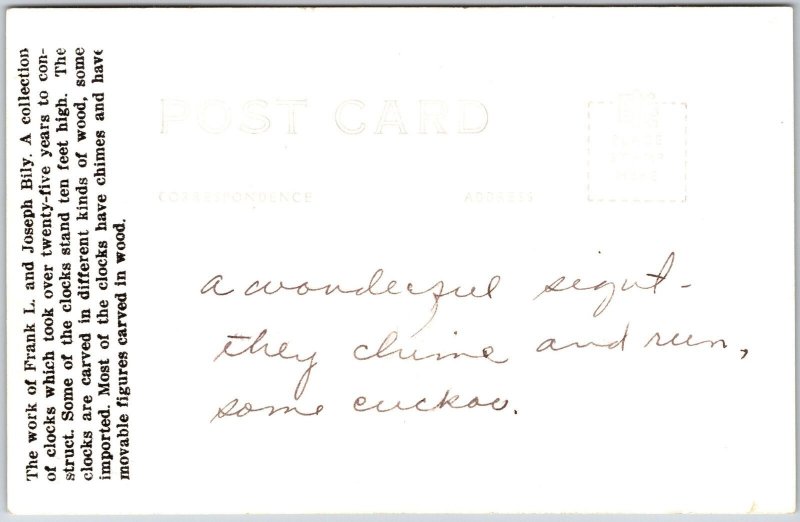 The work of Frank L. and Joseph Bily. A collection
of clocks which took over twenty-five years to con-
struct. Some of the clocks stand ten feet high. The
clocks are carved in different kinds of wood, some
imported. Most of the clocks have chimes and have
movable figures carved in wood.
POST CARD
CORRESPONDENCE
ADDRESS
PLACE
STAMP
HERE
a wonderful sight -
they chime and run,
some cuckoo.